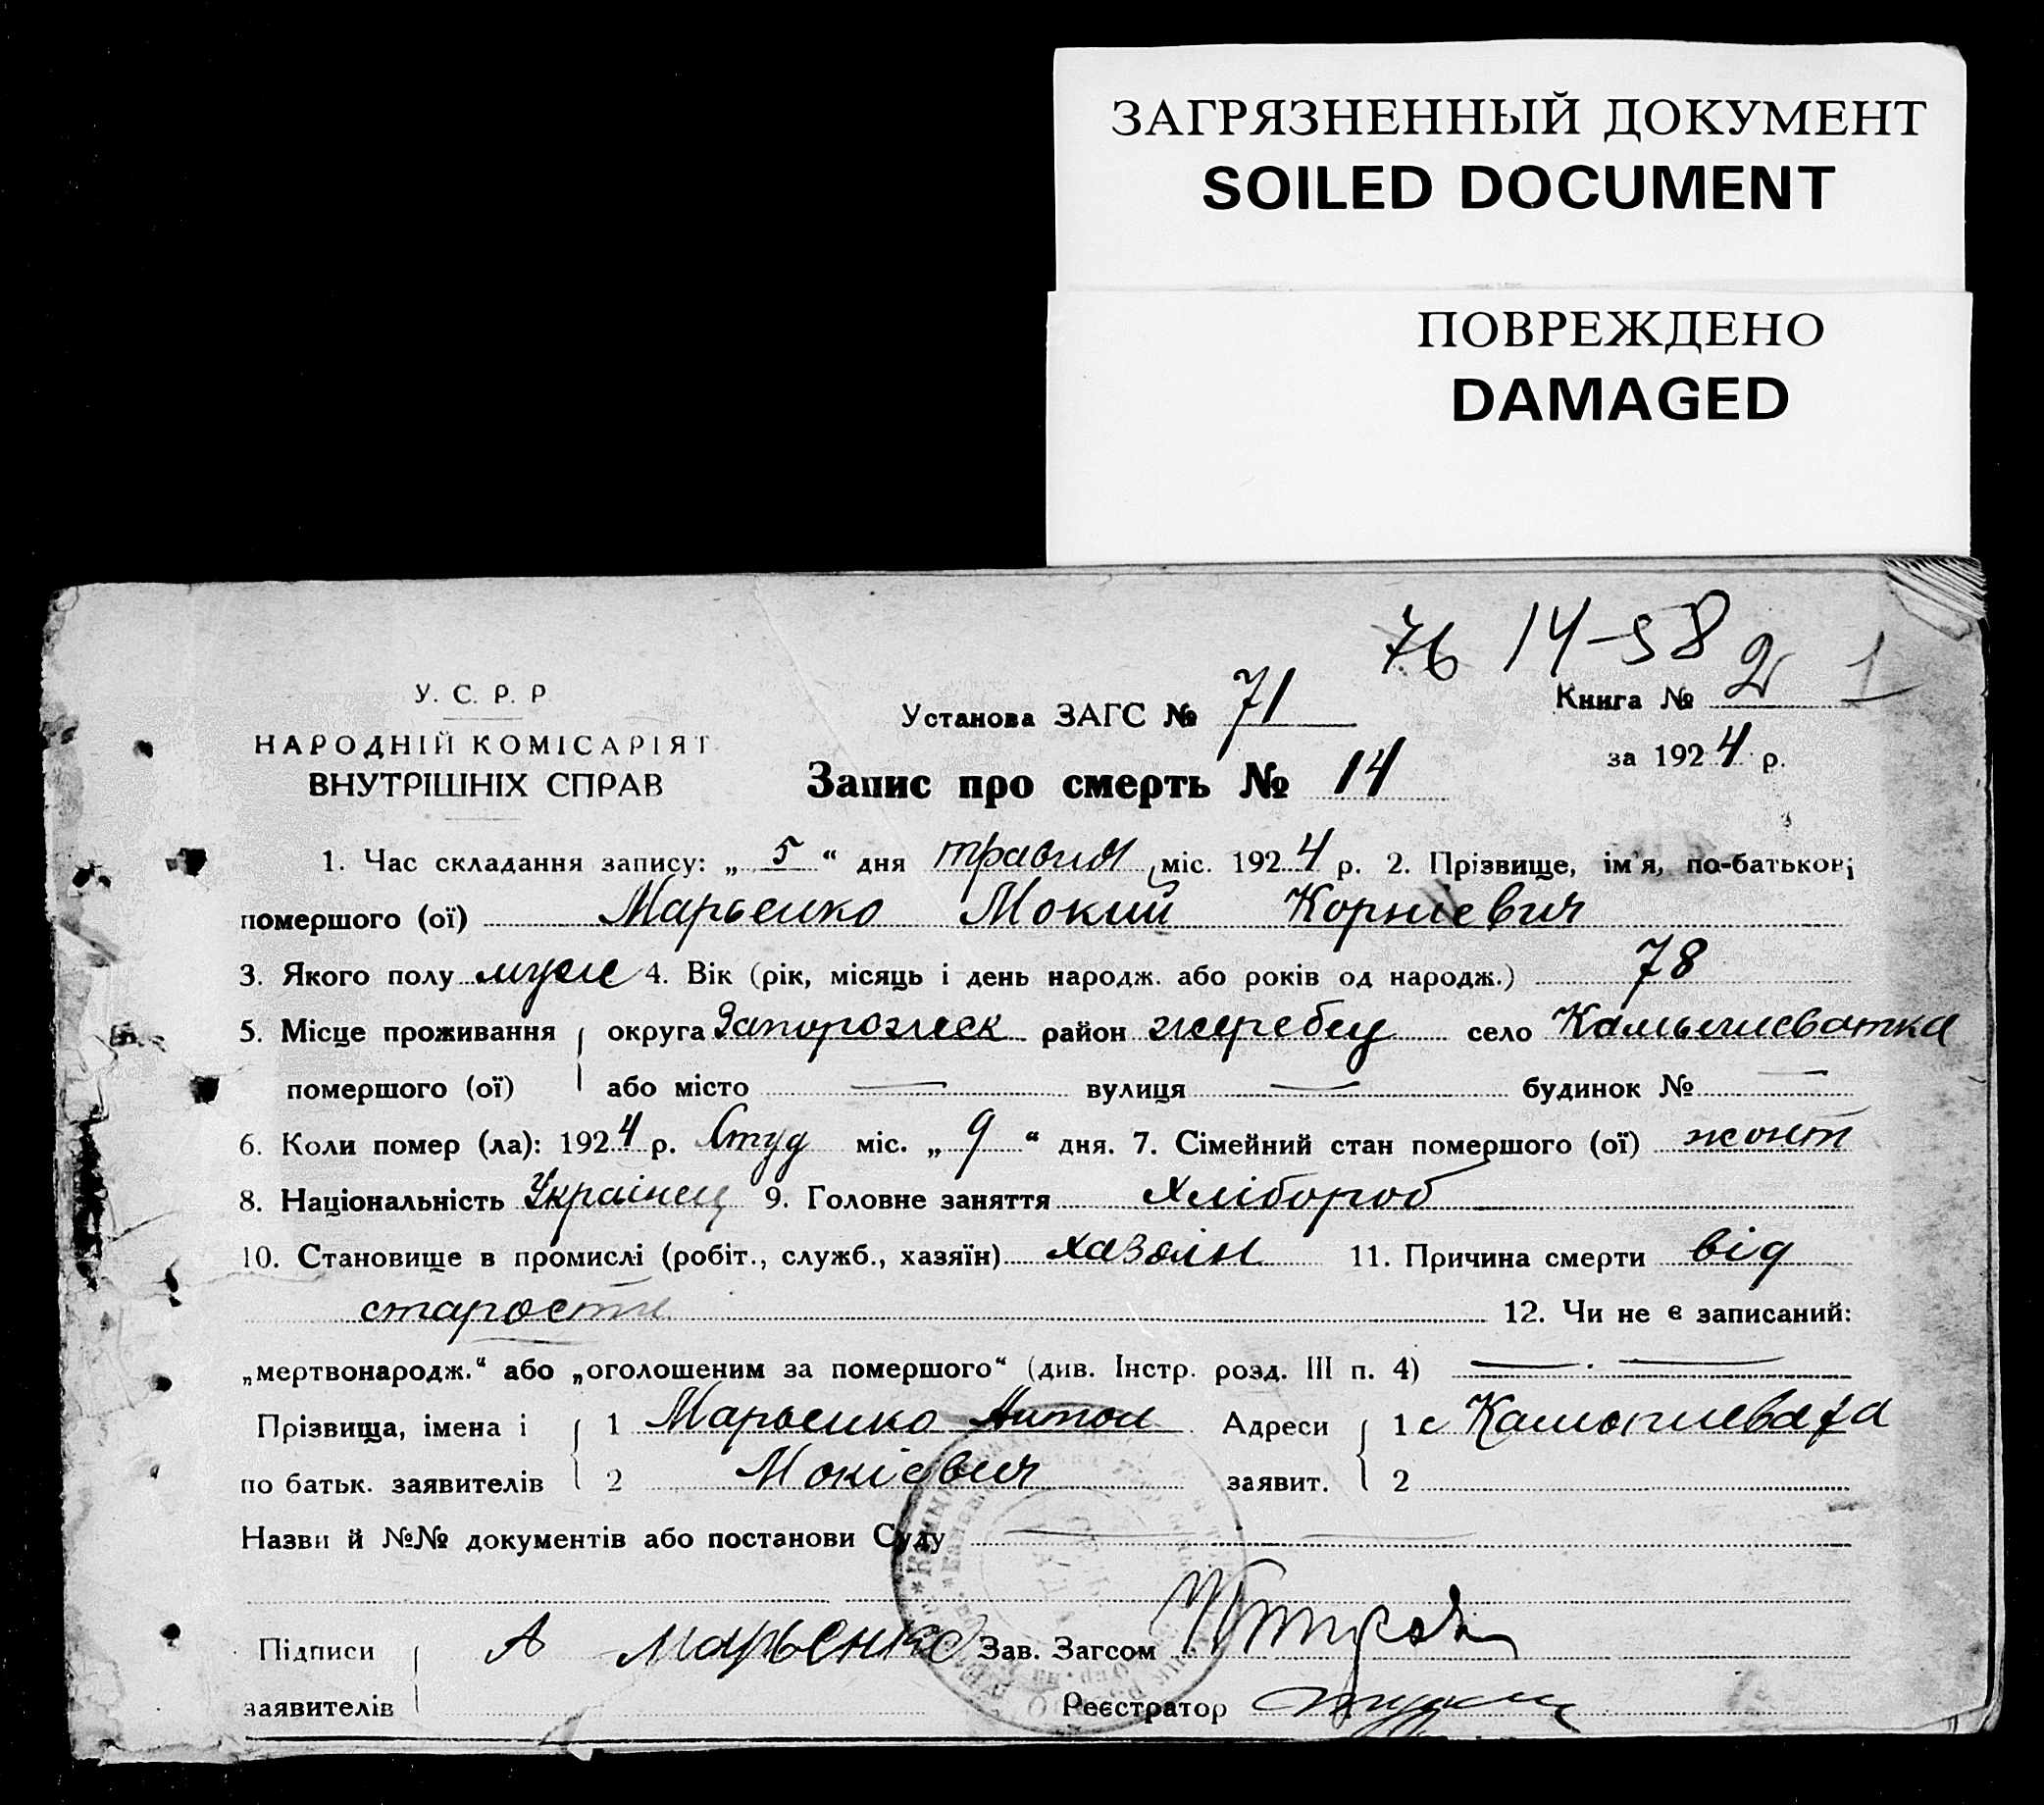 ЗАГРЯЗНЕННЫЙ ДОКУМЕНТ
SOILED DOCUMENT
ПОВРЕЖДЕНО
DAMAGED
76 14-58
У. С. Р. Р
НАРОДНІЙ КОМІСАРІЯТ
ВНУТРІШНІХ СПРАВ
Установа ЗАГС № 71
Книга № 2 1
за 1924 р.
Запис про смерть № 14
1. Час складання запису: „ 5 “ дня травня міс. 1924 р. 2. Прізвище, ім'я, по-батькові
помершого (ої) Марьенко Мокий Корнієвич
3. Якого полу муж 4. Вік (рік, місяць і день народж. або років од народж.) 78
5. Місце проживання округа Запорожск район жеребец село Камышеватка
помершого (ої) або місто — вулиця — будинок № —
6. Коли помер (ла): 1924 р. Студ міс. „ 9 “ дня. 7. Сімейний стан помершого (ої) жонат
8. Національність Українец 9. Головне заняття хлібороб
10. Становище в промислі (робіт., служб., хазяїн) хазяін 11. Причина смерти від
старости 12. Чи не є записаний:
„мертвонародж.“ або „оголошеним за помершого“ (див. Інстр. розд. III п. 4) — . —
Прізвища, імена і 1 Марьенко Антон Адреси 1 с
по батьк. заявителів 2 Мокієвич заявит. 2
Назви й №№ документів або постанови Суду
Підписи А Марьенко Зав. Загсом
заявителів Реєстратор